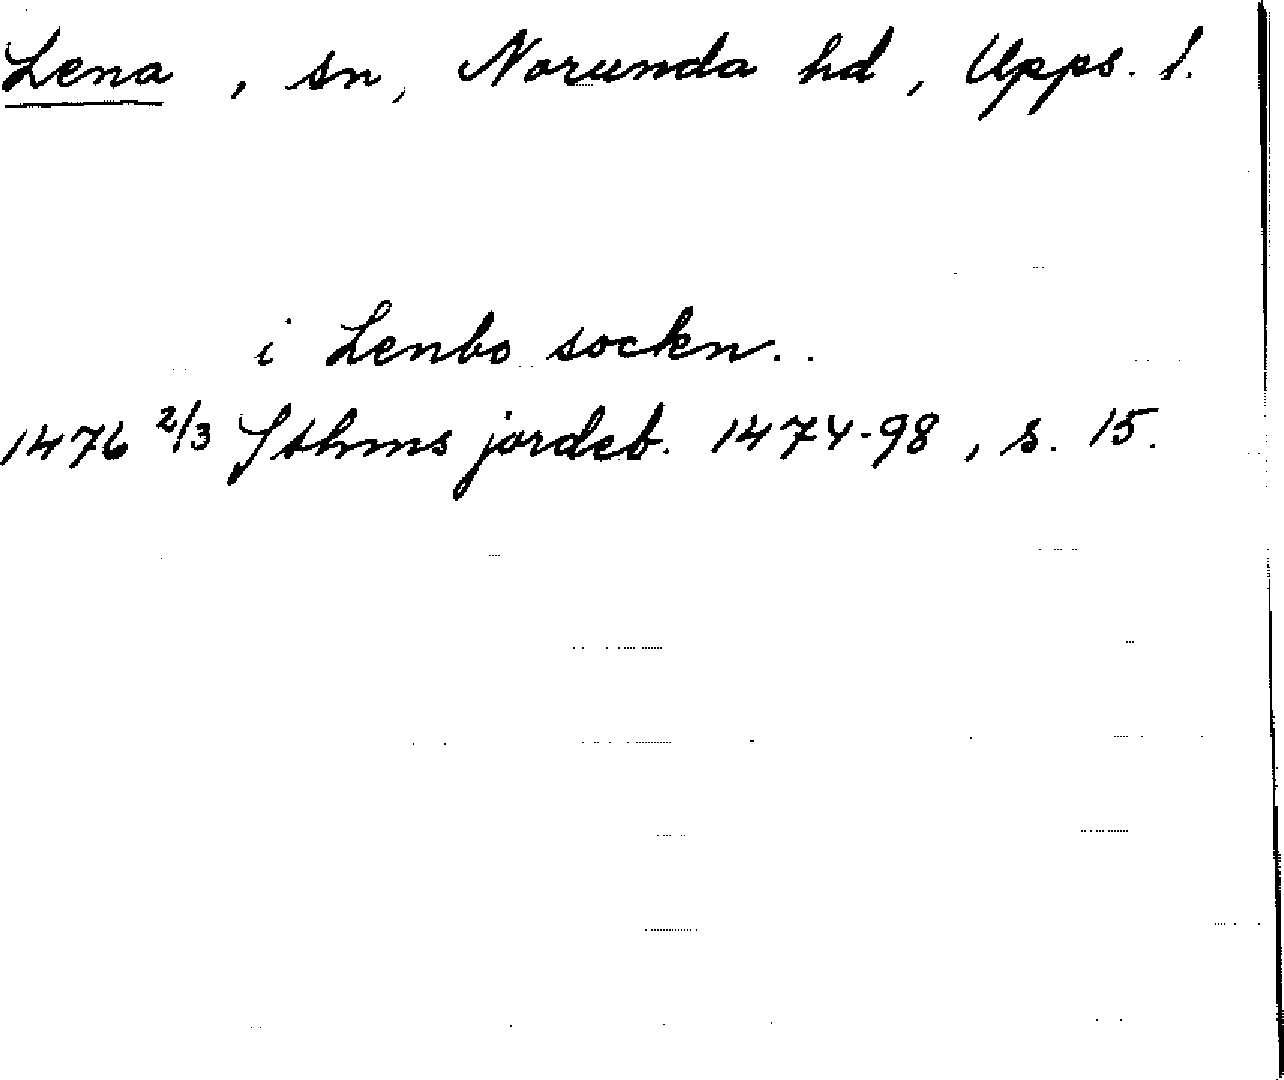 Lena, sn, Norunda hd, Upps. l.
i Lenbo sockn..
1476 2/3 Sthms jordeb. 1474-98, s. 15.